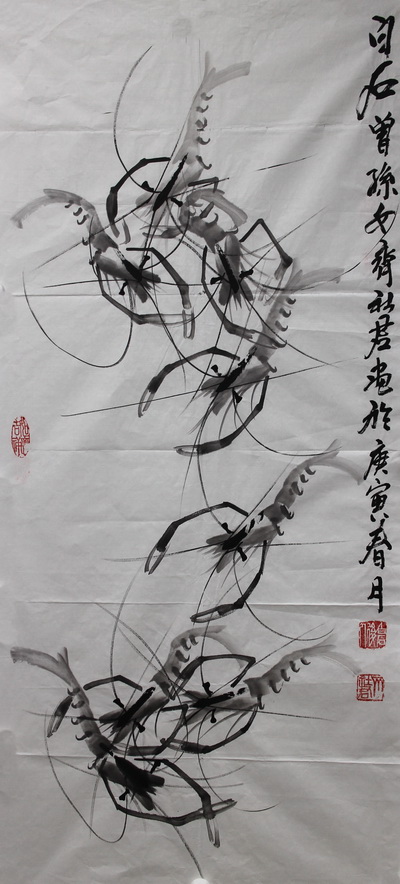 白石曾孫女齊秋君画於庚寅春月